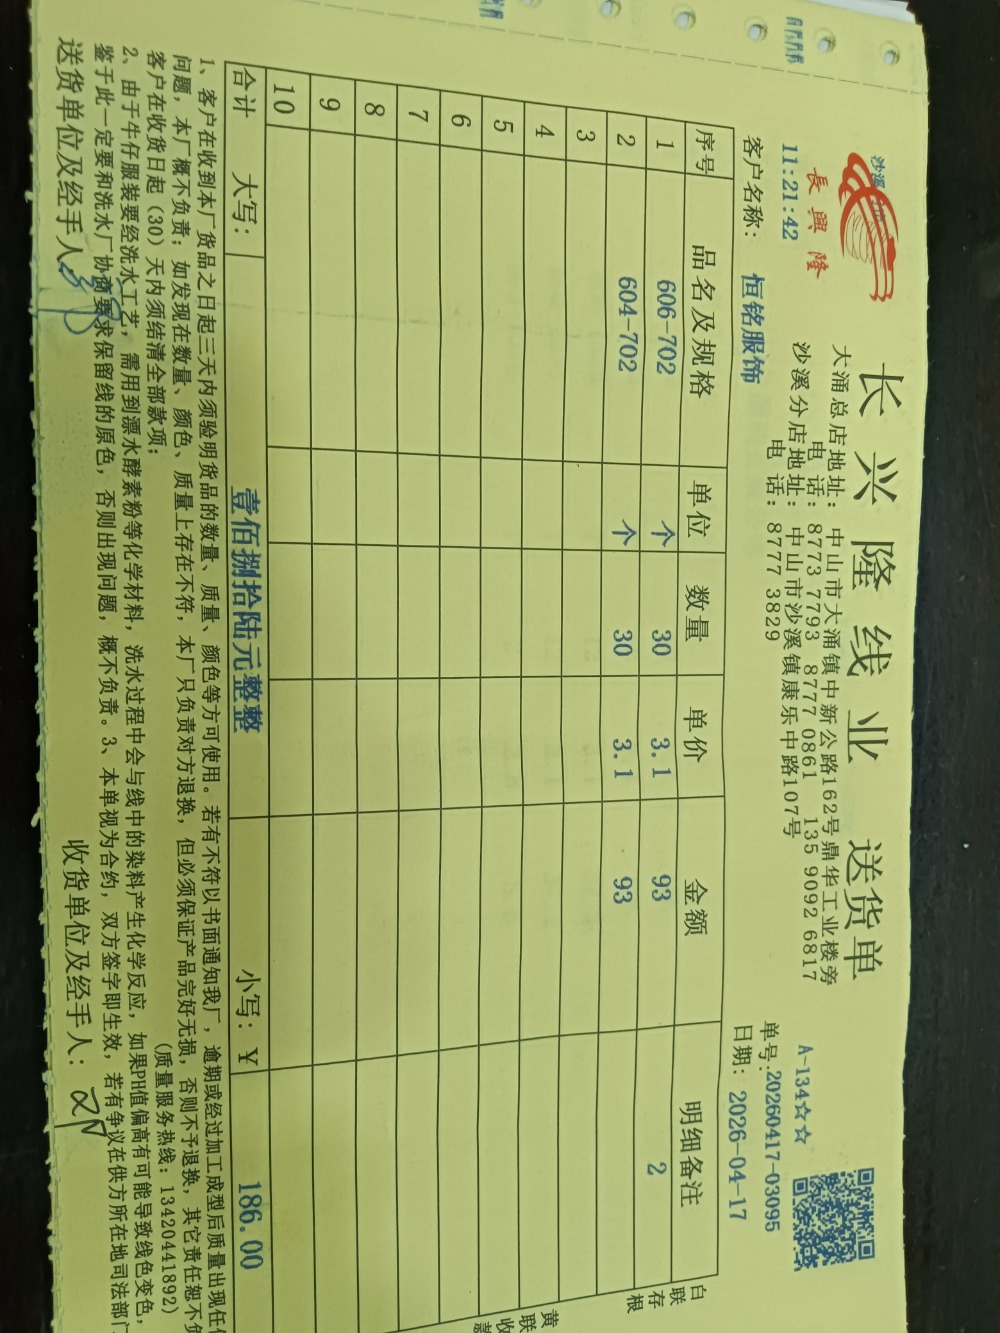 長興隆
长兴隆线业 送货单
A-134☆☆
11:21:42
大涌总店地址：中山市大涌镇中新公路162号鼎华工业楼旁
电 话：8773 7793 8777 0861 135 9092 6817
沙溪分店地址：中山市沙溪镇康乐中路107号
电 话：8777 3829
单号:20260417-03095
客户名称： 恒铭服饰
日期：2026-04-17
序号 品名及规格 单位 数量 单价 金额 明细备注
1 606-702 个 30 3.1 93 2
2 604-702 个 30 3.1 93
3
4
5
6
7
8
9
10
合计 大写： 壹佰捌拾陆元整整 小写：￥ 186.00
白联存根
黄联收款
1、客户在收到本厂货品之日起三天内须验明货品的数量、质量、颜色等方可使用。若有不符以书面通知我厂，逾期或经过加工成型后质量出现任
问题，本厂概不负责；如发现在数量、颜色、质量上存在不符，本厂只负责对方退换，但必须保证产品完好无损，否则不予退换，其它责任恕不
客户在收货日起（30）天内须结清全部款项； （质量服务热线：13420441892）
2、由于牛仔服装要经洗水工艺，需用到漂水酵素粉等化学材料，洗水过程中会与线中的染料产生化学反应，如果PH值偏高有可能导致线色变色，
鉴于此一定要和洗水厂协商要求保留线的原色，否则出现问题，概不负责。3、本单视为合约，双方签字即生效，若有争议在供方所在地司法部门
送货单位及经手人： 收货单位及经手人：